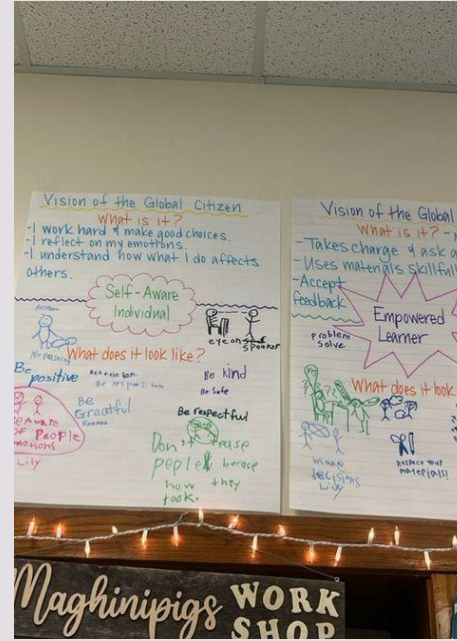 Vision of the Global Citizen
What is it?
-I work hard & make good choices.
-I reflect on my emotions.
-I understand how what I do affects
others.
Self-Aware
Individual
eye on speaker
What does it look like?
Be
positive
Be kind
Be safe
Be
Greatful
Be respectful
of People
Lily
Don't tease
peple
how they
look.
Vision of the Global
What is it?
-Takes charge & ask a
-Uses materials skillfull
-Accept
feedback
problem
solve
Empowered
Learner
What does it look
make
decisions
Lily
Respect your
materials!
Maghinipigs WORK
SHOP